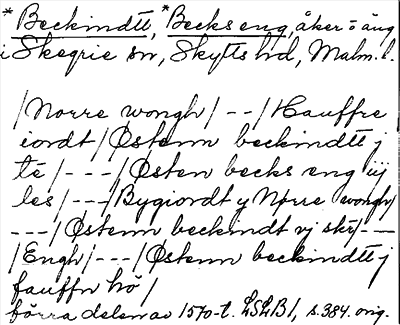 *Beckindtt, *Becks eng, åker o äng
i Skegrie sn, Skytts hd, Malm. l.
/Norre wongh/ - - /Hauffre
iordt/Østenn beckindtt j
te/ - - - /Østen becks eng iij
les/ - - - /Bygiordt y Nørre wongh/
- - - /Østenn beckindt vj skr/ - -
/Engh/ - - - /Østenn beckindtt j
fauffn hö/
förra delen av 1570-t. LSLB1, s. 384. orig.